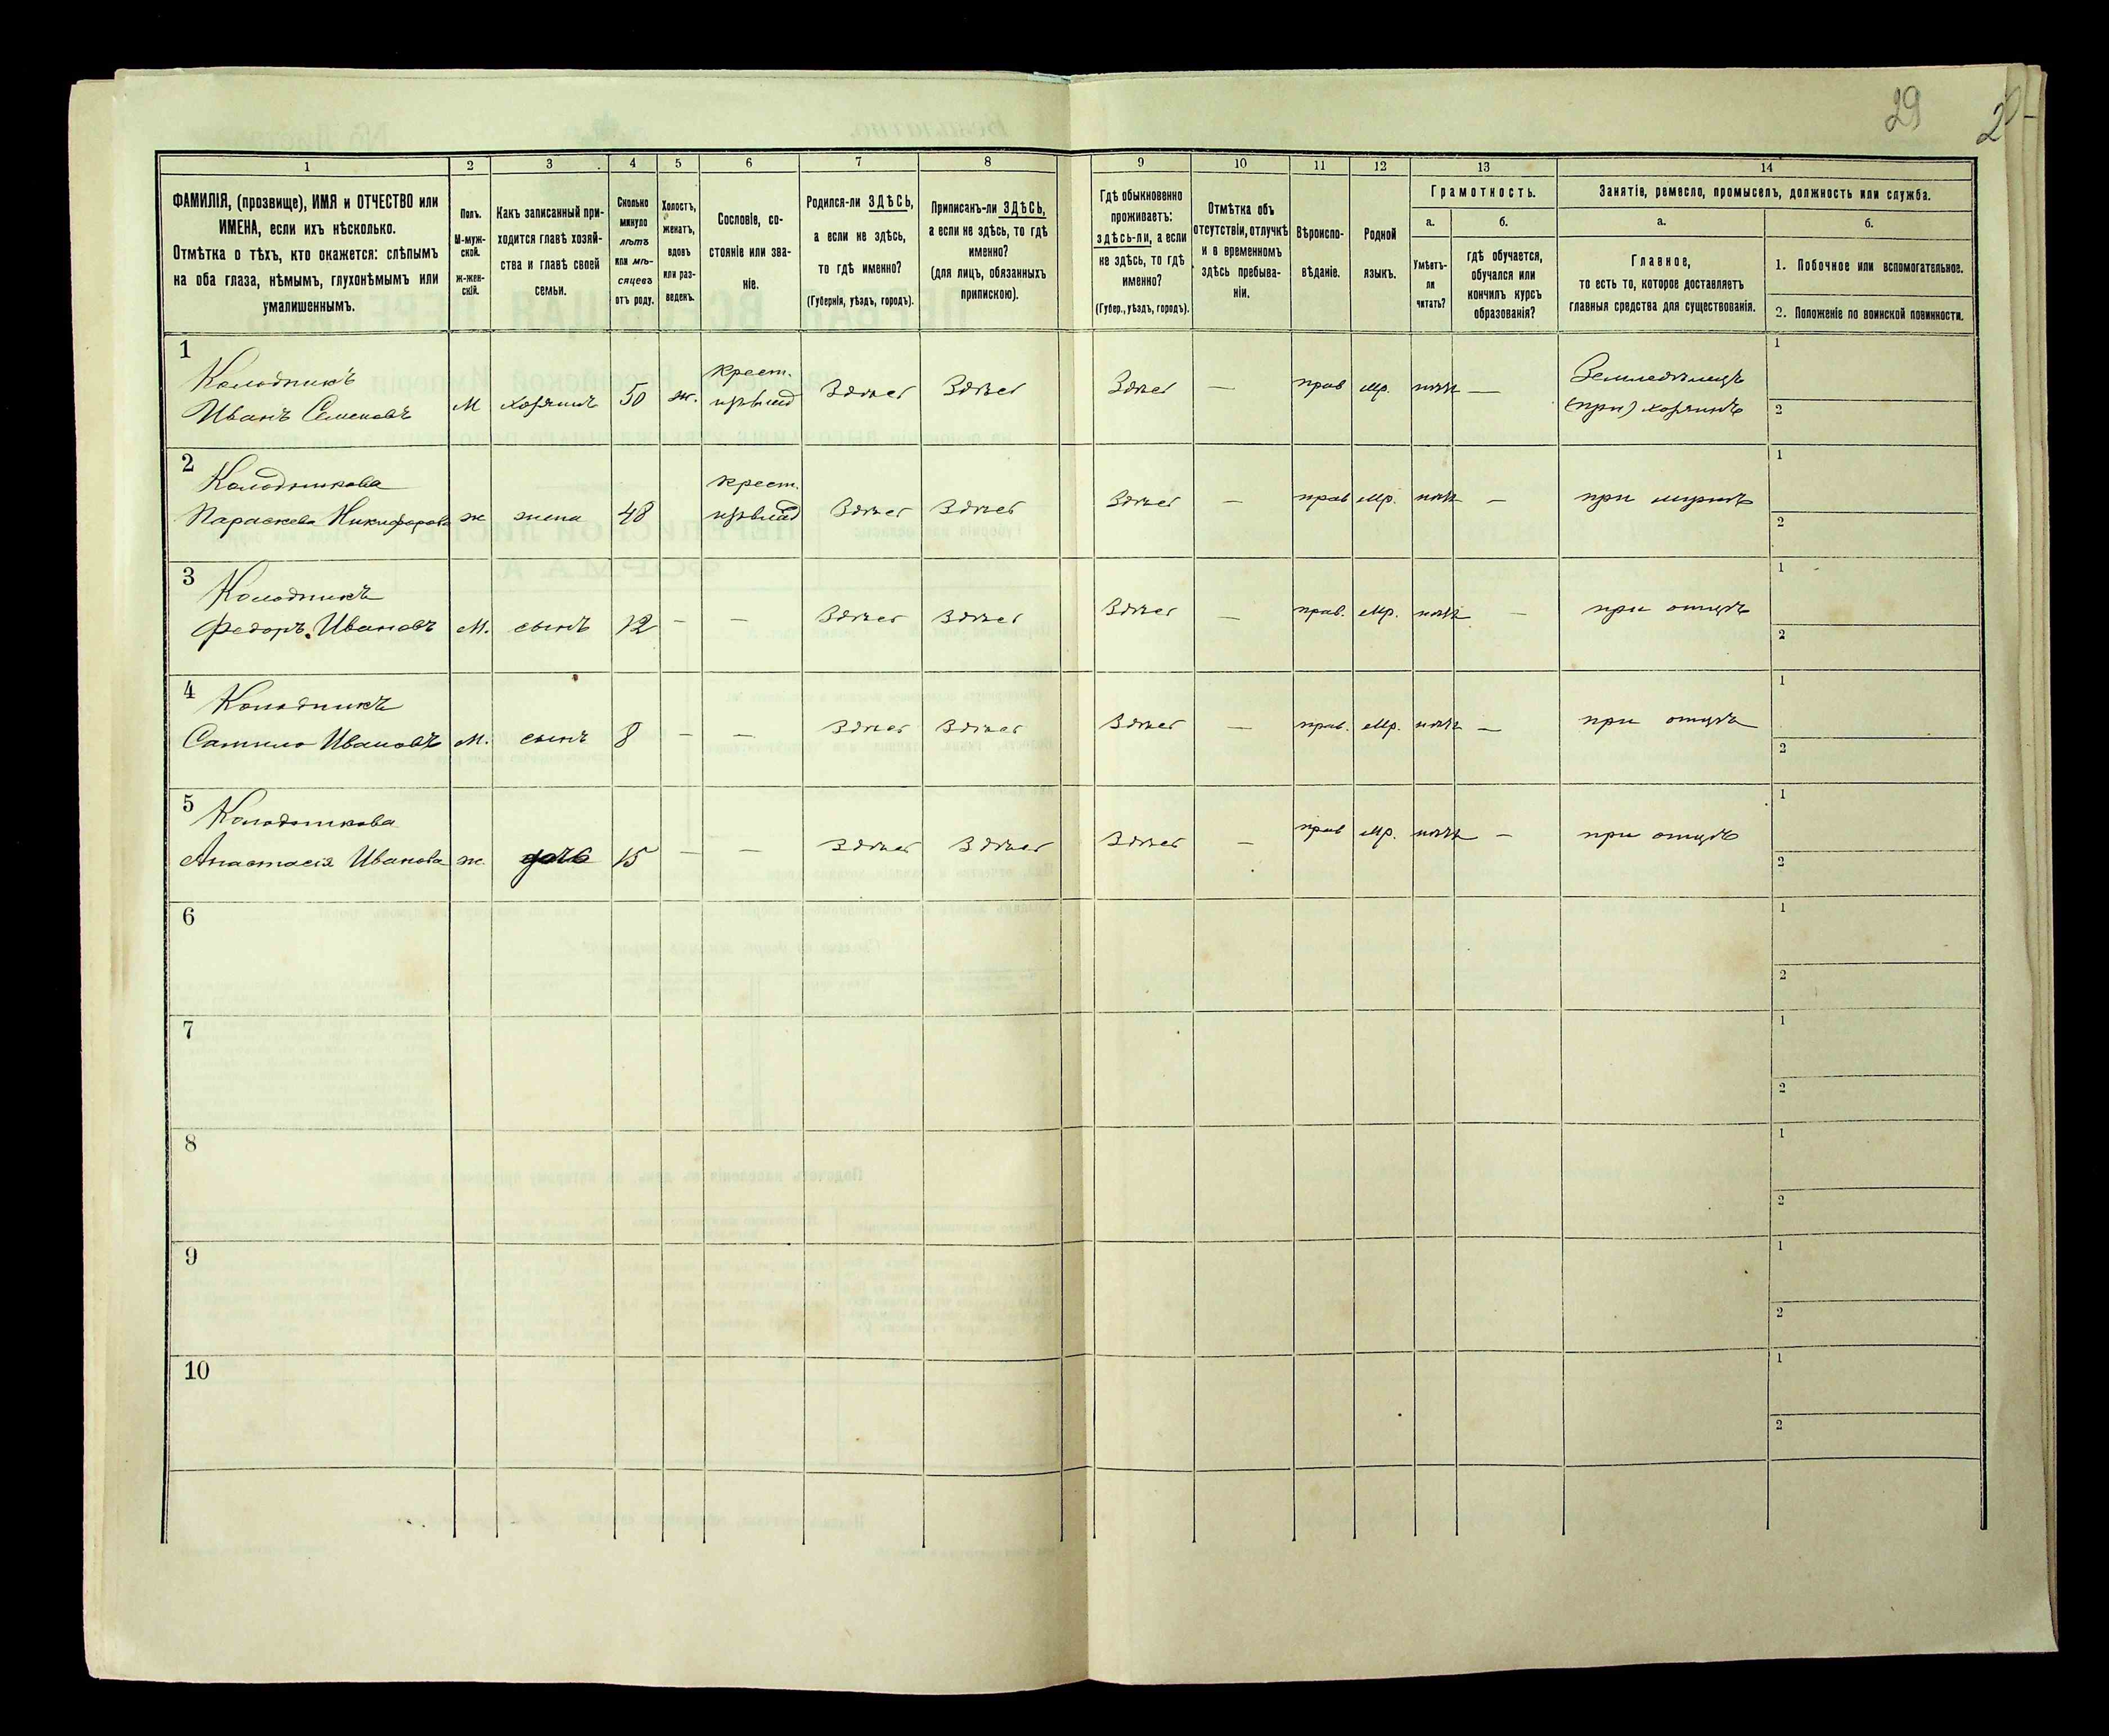 29
1
2
3
4
5
6
7
8
9
10
11
12
13
14
ФАМИЛІЯ, (прозвище), ИМЯ и ОТЧЕСТВО или
ИМЕНА, если ихъ нѣсколько.
Отмѣтка о тѣхъ, кто окажется: слѣпымъ
на оба глаза, нѣмымъ, глухонѣмымъ или
умалишеннымъ.
Полъ.
М-муж-
ской.
ж-жен-
скій.
Какъ записанный при-
ходится главѣ хозяй-
ства и главѣ своей
семьи.
Сколько
минуло
лѣтъ
или мѣ-
сяцевъ
отъ роду.
Холостъ,
женатъ,
вдовъ
или раз-
веденъ.
Сословіе, со-
стояніе или зва-
ніе.
Родился-ли ЗДѢСЬ,
а если не здѣсь,
то гдѣ именно?
(Губернія, уѣздъ, городъ).
Приписанъ-ли ЗДѢСЬ,
а если не здѣсь, то гдѣ
именно?
(для лицъ, обязанныхъ
припискою).
Гдѣ обыкновенно
проживаетъ:
здѣсь-ли, а если
не здѣсь, то гдѣ
именно?
(Губер., уѣздъ, городъ).
Отмѣтка объ
отсутствіи, отлучкѣ
и о временномъ
здѣсь пребыва-
ніи.
Вѣроиспо-
вѣданіе.
Родной
языкъ.
Грамотность.
а.
б.
Умѣетъ-
ли
читать?
гдѣ обучается,
обучался или
кончилъ курсъ
образованія?
Занятіе, ремесло, промыселъ, должность или служба.
а.
б.
Главное,
то есть то, которое доставляетъ
главныя средства для существованія.
1. Побочное или вспомогательное.
2. Положеніе по воинской повинности.
1
Колодникъ
Иванъ Семеновъ
М
хозяинъ
50
ж.
крест.
Здѣсь
Здѣсь
Здѣсь
—
прав
мр.
нѣтъ
—
Земледѣлецъ
(при) хозяинъ
1
2
2
Колодникова
Параскева Никифорова
ж
жена
48
крест.
Здѣсь
Здѣсь
Здѣсь
—
прав
мр.
нѣтъ
—
при мужѣ
1
2
3
Колодникъ
Федоръ Ивановъ
М.
сынъ
12
—
—
Здѣсь
Здѣсь
Здѣсь
—
прав.
мр.
нѣтъ
—
при отцѣ
1
2
4
Колодникъ
Ивановъ
М.
сынъ
8
—
—
Здѣсь
Здѣсь
Здѣсь
—
прав.
мр.
нѣтъ
—
при отцѣ
1
2
5
Колодникова
Анастасія Иванова
ж
дочь
15
—
—
Здѣсь
Здѣсь
Здѣсь
—
прав
мр.
нѣтъ
—
при отцѣ
1
2
6
1
2
7
1
2
8
1
2
9
1
2
10
1
2